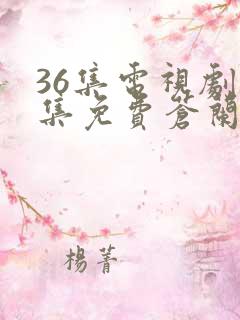 36集電視劇
集免費蒼蘭
楊菁